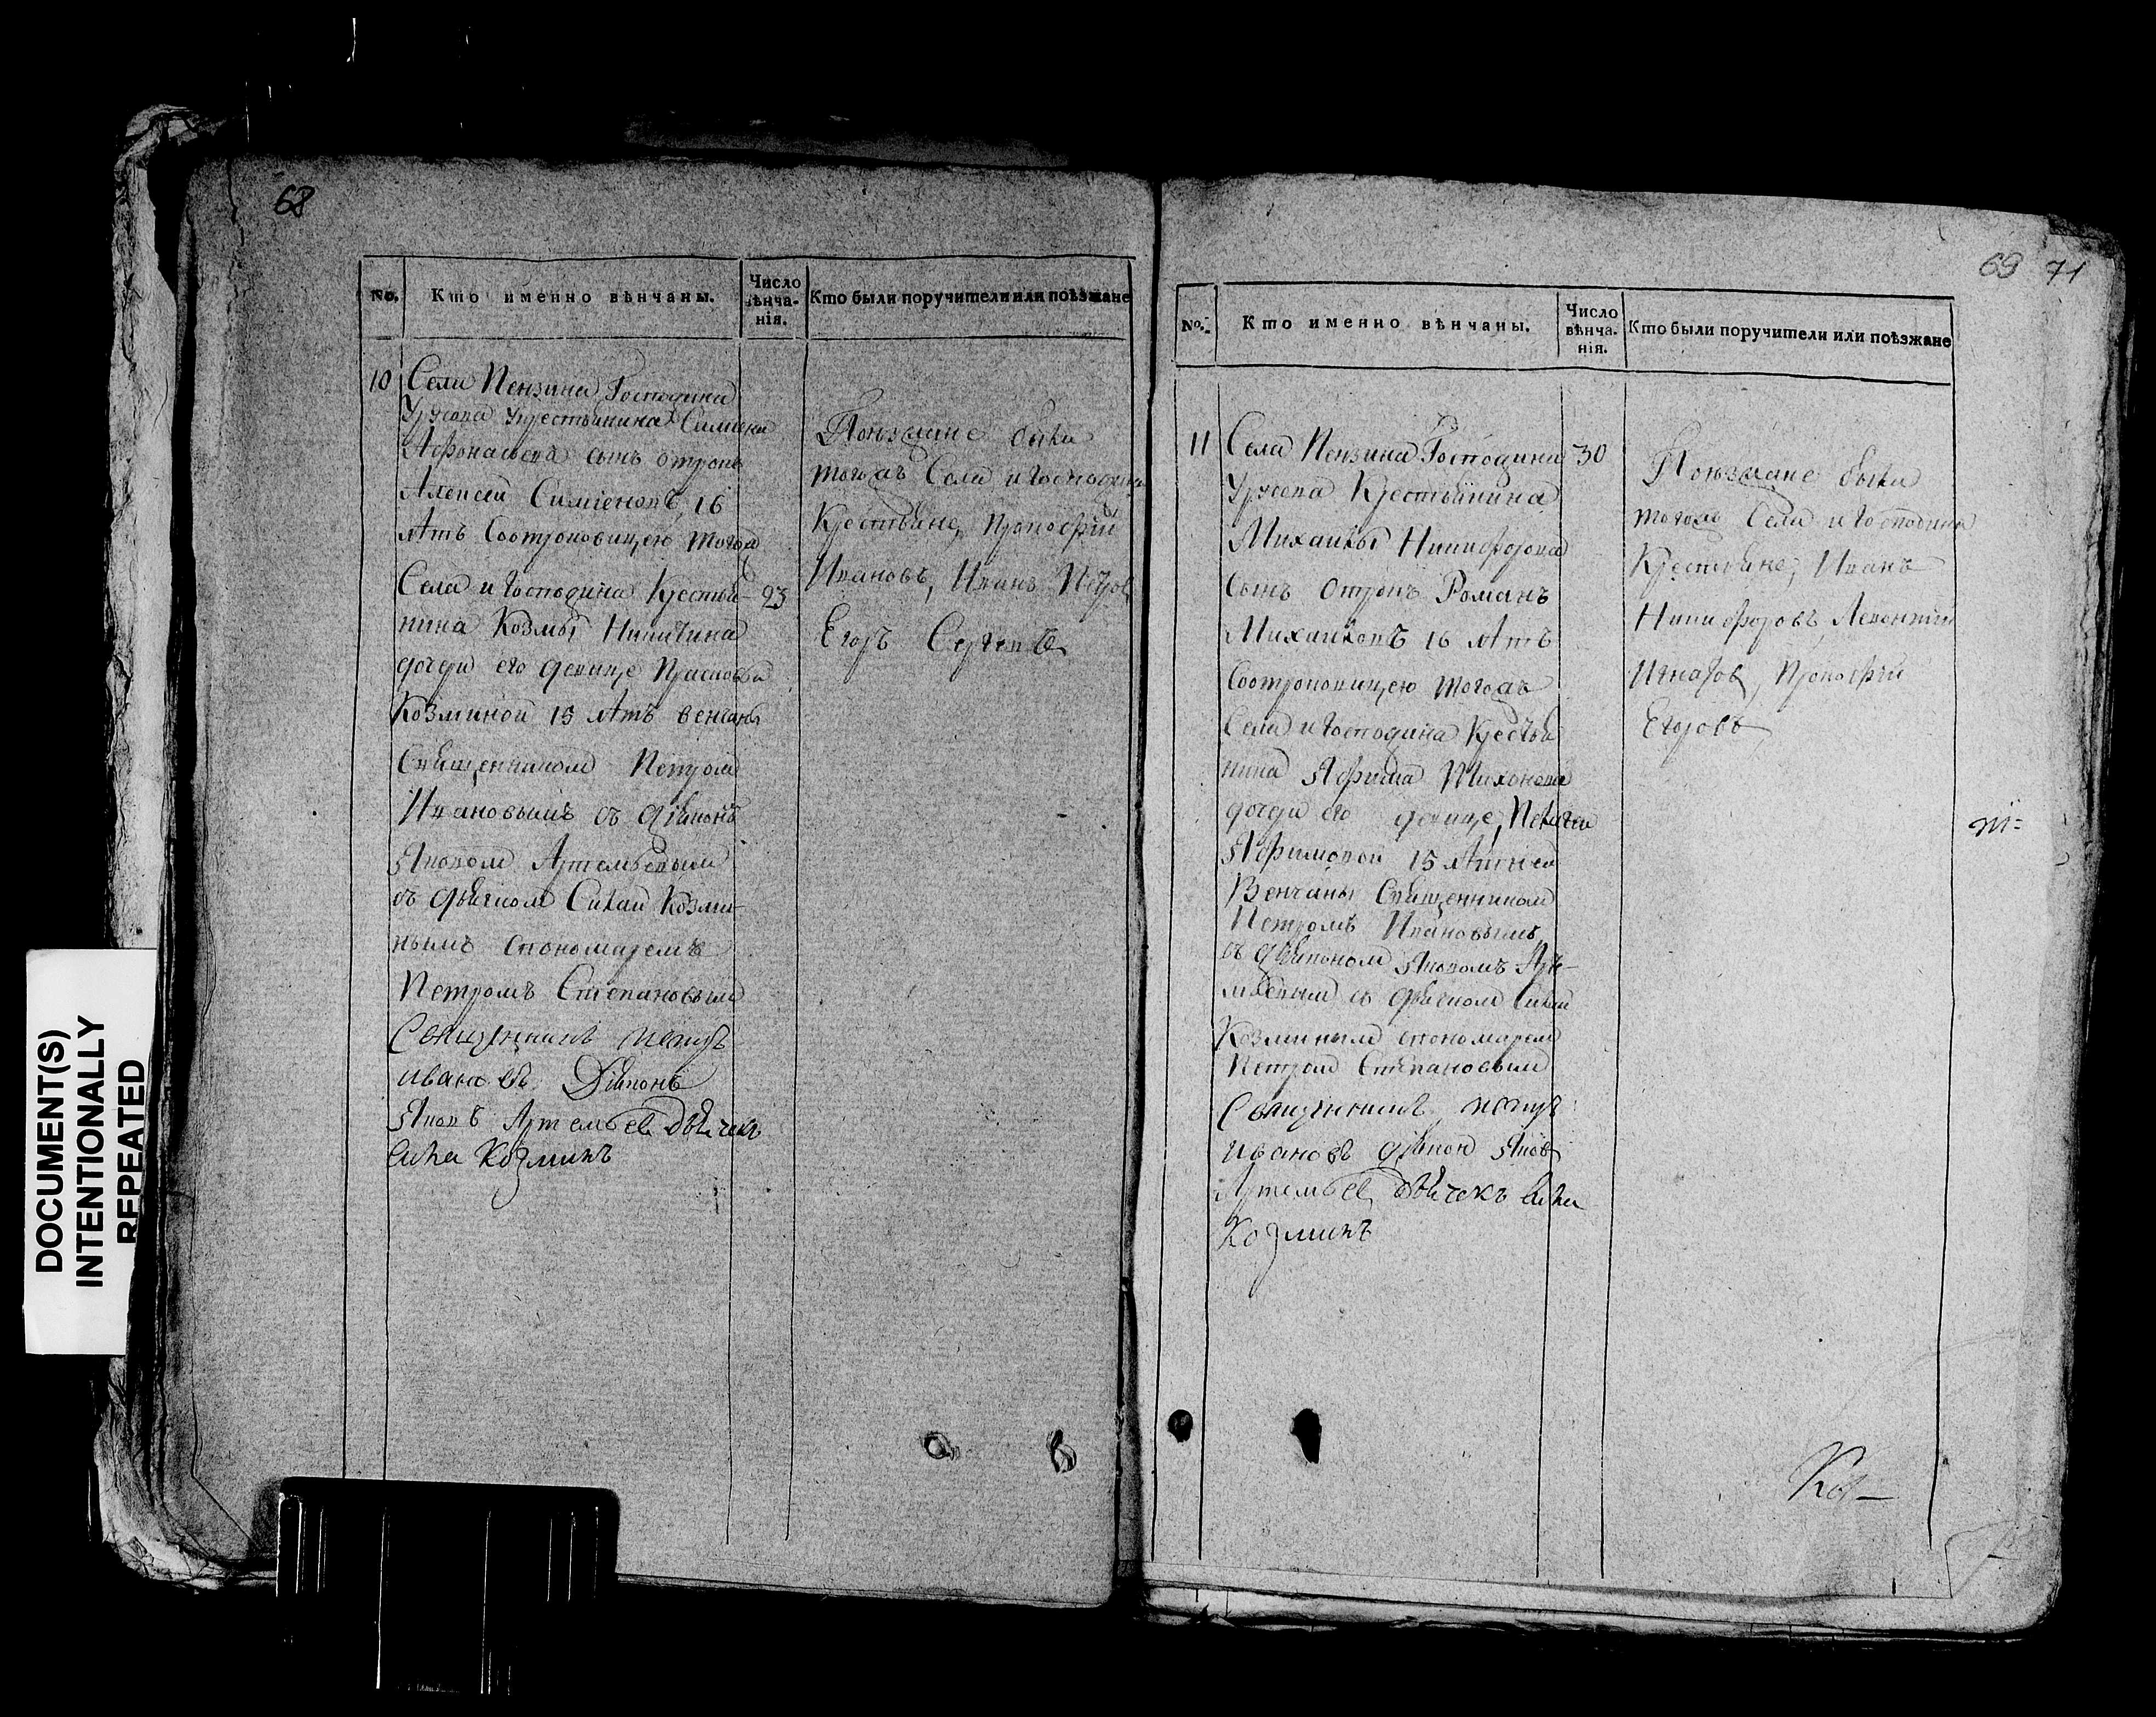 68
No. Кто именно вѣнчаны. Число вѣнча- нія. Кто были поручители или поѣзжане
10 Села Пензина Господина
Урусова крестьянина Симиона
Афонасьева сынъ отрокъ
Алексей Симіеновъ 16
лѣтъ Соотроковицею тогожъ
Села и Господина Крестья- 23
нина Козмы Никитина
дочери его девице Прасковьи
Козминой 15 лѣтъ венчаны
Священникомъ Петромъ
Ивановымъ съ діякономъ
Яковом Артемьевым
съ дьячком Силай Козми-
нымъ спономаремъ
Петромъ Степановым
Священникъ Петръ
Ивановъ Діяконъ
Яковъ Артемьевъ дьячекъ
Сила Козминъ
Поѣзжане были
тогожъ Села и Господина
Крестьяне, Прокофий
Ивановъ, Иванъ Петров
Егоръ Сергеевъ
69 71
No. Кто именно вѣнчаны. Число вѣнча- нія. Кто были поручители или поѣзжане
11 Села Пензина Господина 30
Урусова Крестьянина
Михаилы Никифорова
сынъ Отрокъ Романъ
Михаиловъ 16 лѣтъ
Соотроковицею тогожъ
Села и Господина Крестья
нина Яфима Тихонова
дочери его девице, Пелагеи
Яфимовой 15 лѣт
Венчаны Священником
Петромъ Ивановымъ
съ діякономъ Яковомъ Арте-
мьевым съ дьячком Силай
Козминым спономарем
Петром Степановым
Священникъ Петръ
Ивановъ діякон Яков
Артемьев дьячекъ Сила
Козминъ
Поѣзжане были
тогожъ Села и Господина
Крестьяне, Иванъ
Никифоровъ, Леонтий
Игнатов, Прокофий
Егоровъ
DOCUMENT(S)
INTENTIONALLY
REPEATED